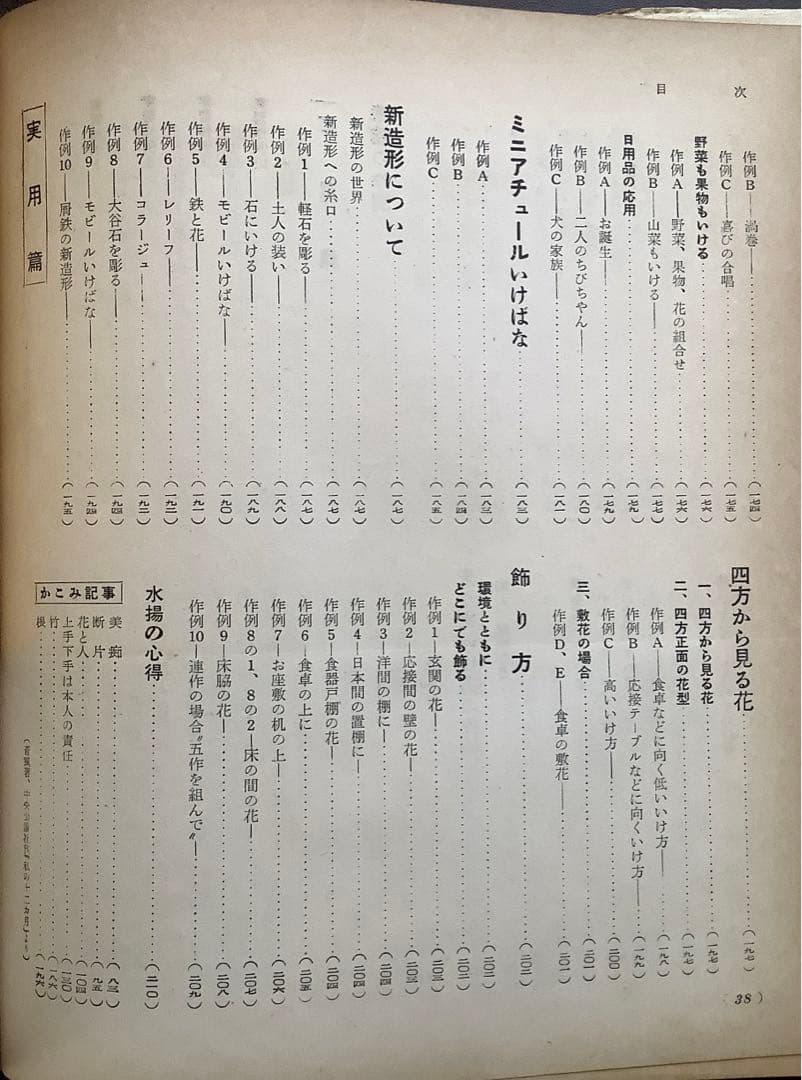 目次
作例B――渦巻――……(一七四)
作例C――喜びの合唱……(一七五)
野菜も果物もいける……(一七六)
作例A――野菜、果物、花の組合せ……(一七六)
作例B――山菜もいける――……(一七七)
日用品の応用……(一七九)
作例A――お誕生――……(一七九)
作例B――二人のちびちゃん――……(一八〇)
作例C――犬の家族――……(一八一)
ミニアチュールいけばな……(一八三)
作例A……(一八三)
作例B……(一八四)
作例C……(一八五)
新造形について……(一八七)
新造形の世界……(一八七)
新造形への糸口……(一八七)
作例1――軽石を彫る――……(一八七)
作例2――土人の装い――……(一八八)
作例3――石にいける――……(一八九)
作例4――モビールいけばな――……(一九〇)
作例5――鉄と花――……(一九一)
作例6――レリーフ――……(一九二)
作例7――コラージュ――……(一九二)
作例8――大谷石を彫る――……(一九四)
作例9――モビールいけばな――……(一九四)
作例10――屑鉄の新造形――……(一九五)
実用篇
四方から見る花……(一九七)
一、四方から見る花……(一九七)
二、四方正面の花型……(一九七)
作例A――食卓などに向く低いいけ方――……(一九八)
作例B――応接テーブルなどに向くいけ方――……(一九九)
作例C――高いいけ方――……(二〇〇)
三、敷花の場合……(二〇一)
作例D、E――食卓の敷花――……(二〇一)
飾り方……(二〇二)
環境とともに……(二〇二)
どこにでも飾る……(二〇二)
作例1――玄関の花――……(二〇三)
作例2――応接間の壁の花――……(二〇三)
作例3――洋間の棚に――……(二〇四)
作例4――日本間の置棚に――……(二〇四)
作例5――食器戸棚の花――……(二〇四)
作例6――食卓の上に……(二〇五)
作例7――お座敷の机の上――……(二〇六)
作例8の1、8の2――床の間の花――……(二〇七)
作例9――床脇の花――……(二〇八)
作例10――連作の場合〝五作を組んで〟――……(二〇九)
水揚の心得……(二一〇)
かこみ記事
美痴……(八三)
断片……(九五)
花と人……(一〇四)
上手下手は本人の責任……(一三〇)
竹……(一八六)
根……(一九六)
(蒼風著、中央公論社版『私の十二カ月』より)
38)